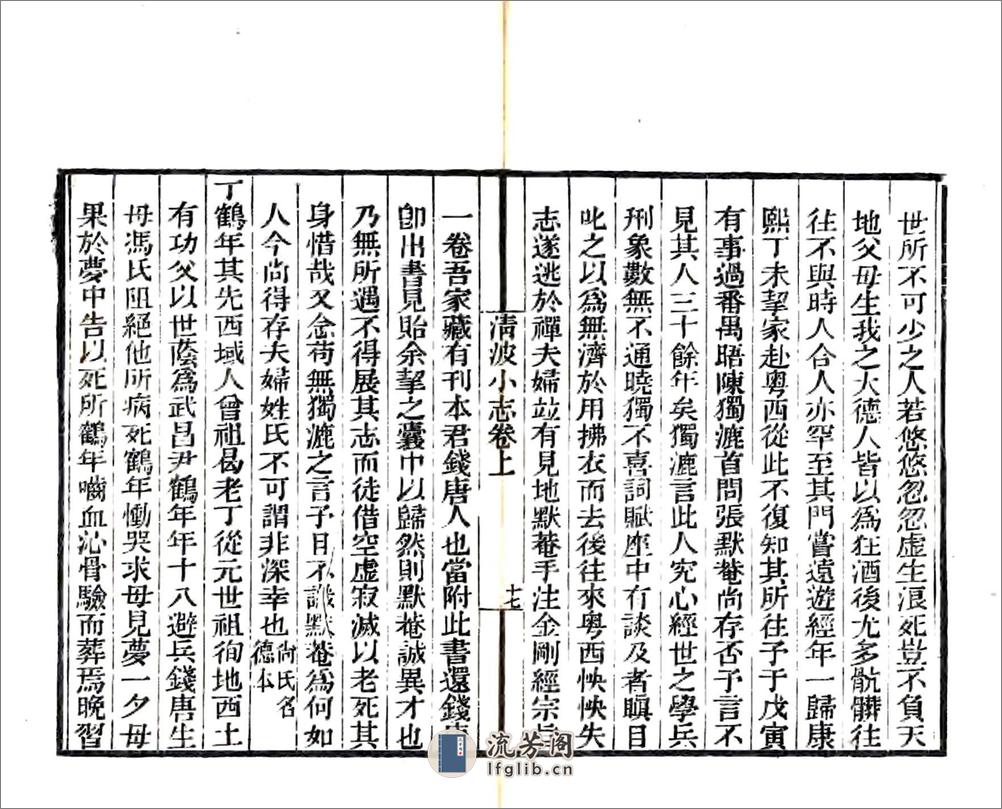 世所不可少之人若悠悠忽忽虛生浪死豈不負天
地父母生我之大德人皆以爲狂酒後尤多骯髒往
往不與時人合人亦罕至其門嘗遠遊經年一歸康
熙丁未挈家赴粵西從此不復知其所往予于戊寅
有事過番禺晤陳獨漉首問張默菴尚存否予言不
見其人三十餘年矣獨漉言此人究心經世之學兵
刑象數無不通曉獨不喜詞賦座中有談及者瞋目
叱之以爲無濟於用拂衣而去後往來粵西怏怏失
志遂逃於禪夫婦竝有見地默菴手注金剛經宗
清波小志卷上
十七
一卷吾家藏有刊本君錢唐人也當附此書還錢
卽出書見貽余挈之囊巾以歸然則默菴誠異才也
乃無所遇不得展其志而徒借空虛寂滅以老死其
身惜哉又念苟無獨漉之言予且不識默菴爲何如
人今尚得存夫婦姓氏不可謂非深幸也尚氏名德本
丁鶴年其先西域人曾祖曷老丁從元世祖徇地西土
有功父以世蔭爲武昌尹鶴年年十八避兵錢唐生
母馮氏阻絕他所病死鶴年慟哭求母見夢一夕母
果於夢中告以死所鶴年嚙血沁骨驗而葬焉晚習
流芳阁
lfglib.cn